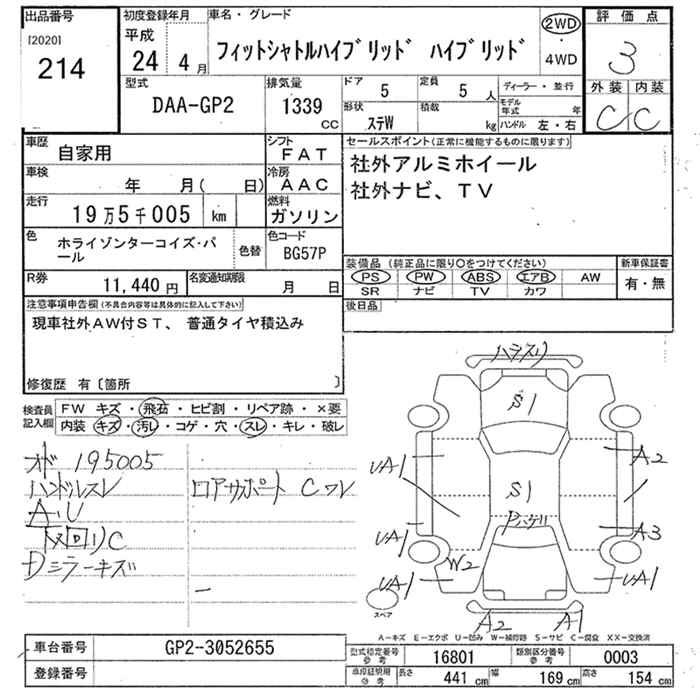 出品番号
[2020]
214
初度登録年月
平成
24 4月
車名・グレード
フィットシャトルハイブリッド ハイブリッド
2WD
・
4WD
評価点
3
外装 内装
C C
型式
DAA-GP2
排気量
1339
CC
ドア 5
定員 5人
形状 ステW
積載 kg
ディーラー・並行
モデル年式 年
ハンドル 左・右
車歴 自家用
シフト FAT
車検 年 月( 日)
冷房 AAC
走行 19万5千005 km
燃料 ガソリン
色 ホライゾンターコイズ・パール
色替
色コード BG57P
R券 11,440円
名変通知期限 月 日
セールスポイント(正常に機能するものに限ります)
社外アルミホイール
社外ナビ、TV
装備品(純正品に限り○をつけてください)
PS PW ABS エアB AW
SR ナビ TV カワ
新車保証書
有・無
後日品
注意事項申告欄(不具合内容等は具体的に記入して下さい)
現車社外AW付ST、 普通タイヤ積込み
修復歴 有〔箇所 〕
検査員記入欄
FW キズ・飛石・ヒビ割・リペア跡・×要
内装 キズ・汚レ・コゲ・穴・スレ・キレ・破レ
オド 195005
ハンドルスレ
A・U
下廻りC
Dミラーキズ
ロアサポート Cワレ
S1
S1
UA1
UA1
UA1
A2
A3
UA1
W2
A2 A1
スペア
A-キズ E-エクボ U-凹み W-補修跡 S-サビ C-腐食 XX-交換済
車台番号 GP2-3052655
登録番号
型式指定番号 参考 16801
類別区分番号 参考 0003
車庫証明用 参考
長さ 441cm
幅 169cm
高さ 154cm